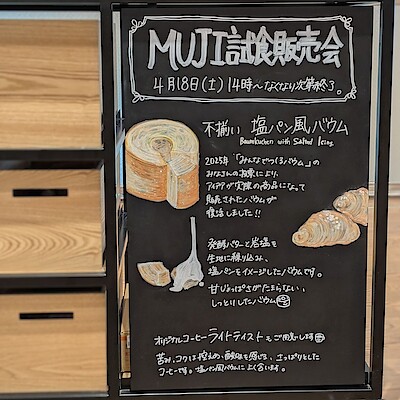 MUJI試食販売会
4月18日(土)14時～なくなり次第終了。
不揃い 塩パン風バウム
Baumkuchen with Salted Icing
2025年「みんなでつくるバウム」の
みなさんの投票により、
アイデアが実際の商品になって
販売されたバウムが
復活しました!!
発酵バターと岩塩を
生地に練り込み、
塩パンをイメージしたバウムです。
甘じょっぱさがたまらない、
しっとりしたバウム
オリジナルコーヒーライトテイストもご用意します
苦み、コクは控えめ、酸味を感じる、さっぱりとした
コーヒーです。塩パン風バウムに よく合います。